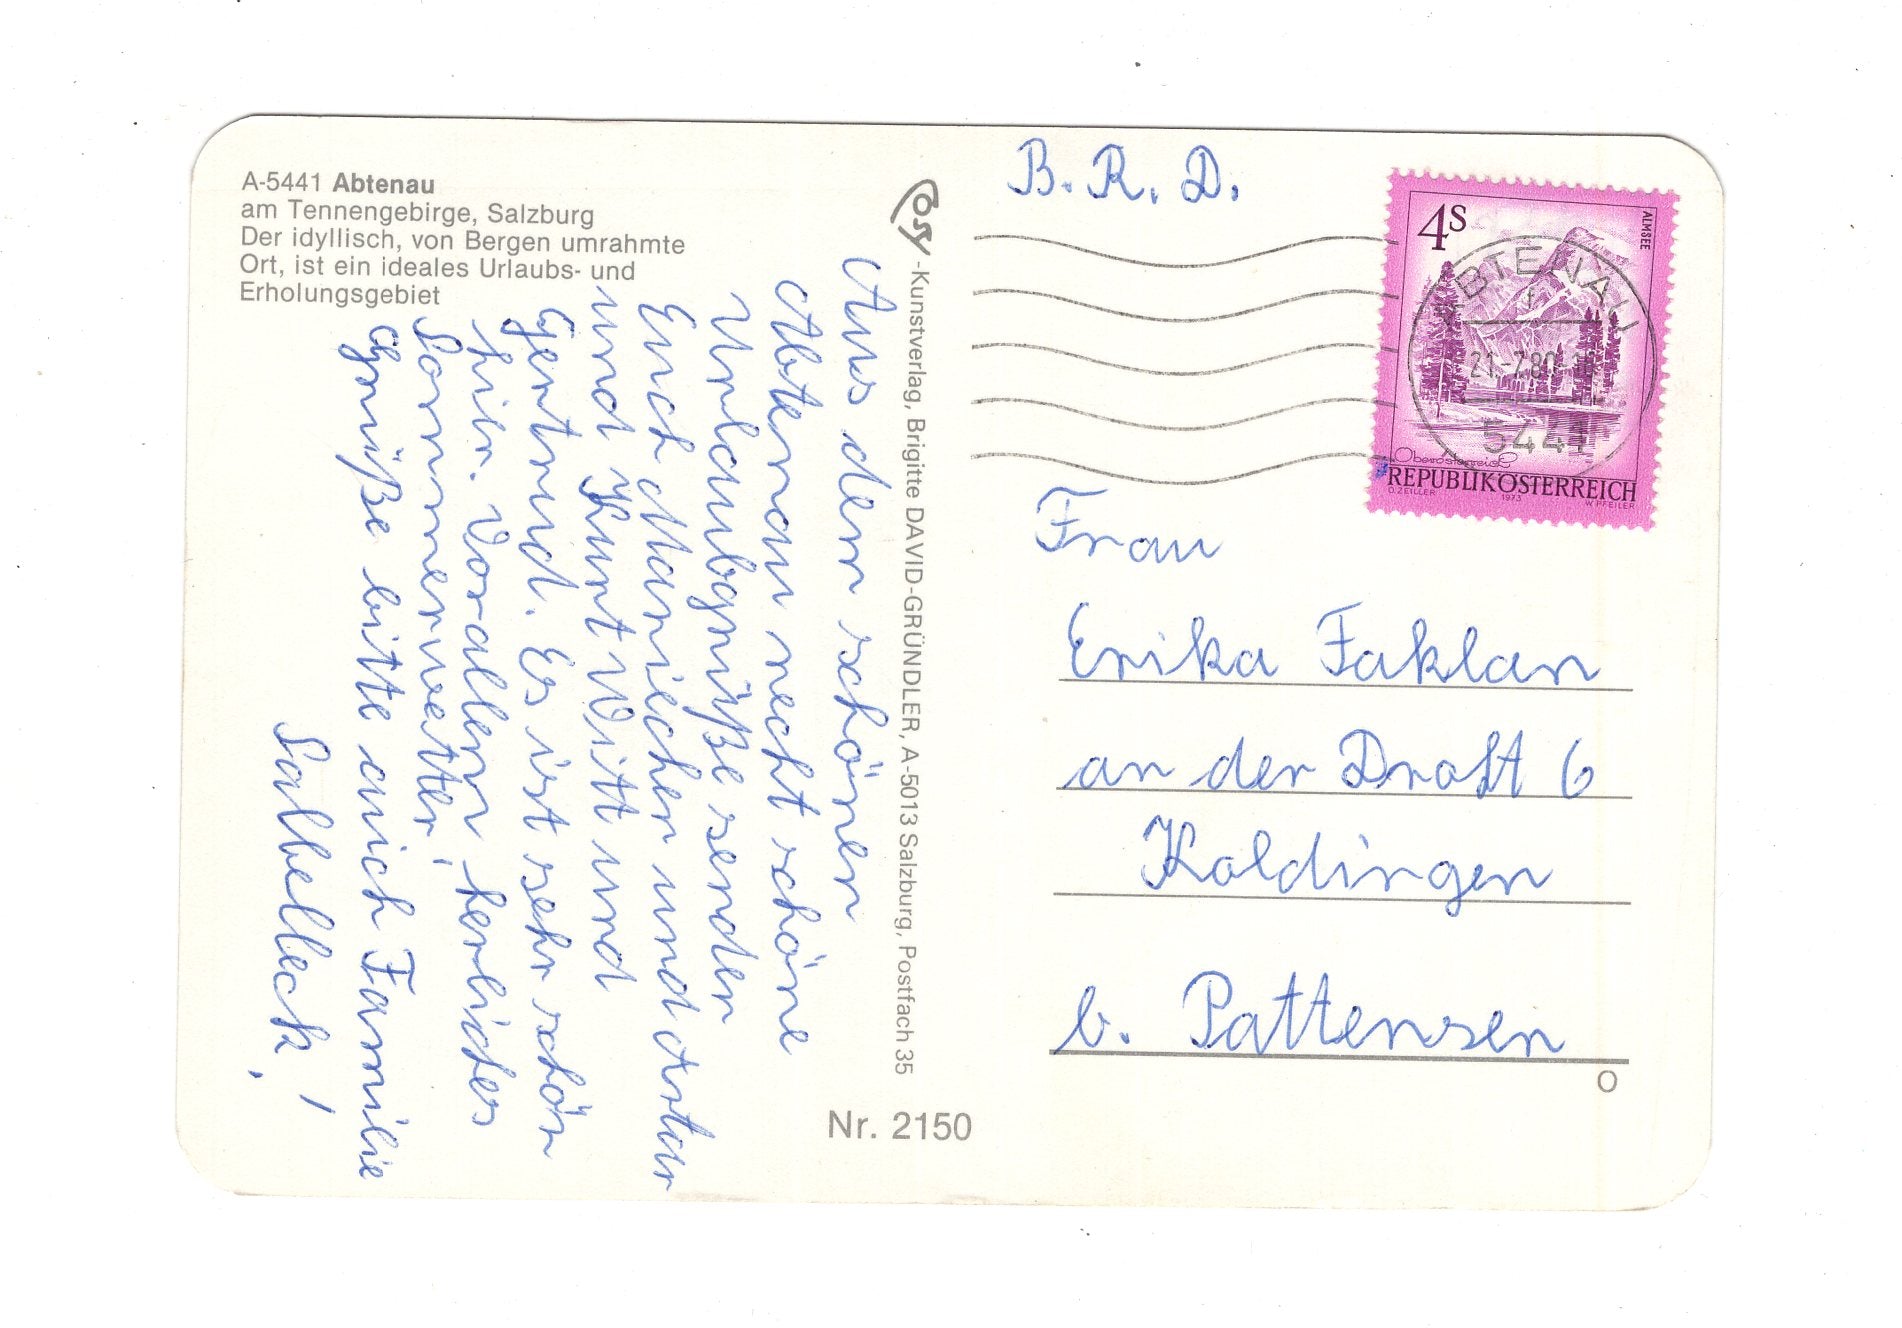 A-5441 Abtenau
am Tennengebirge, Salzburg
Der idyllisch, von Bergen umrahmte
Ort, ist ein ideales Urlaubs- und
Erholungsgebiet
Aus dem schönen
Abtenau recht schöne
Urlaubsgrüße senden
Euch Mariechen und Artur
und Kurt Witt und
Gertrud. Es ist sehr schön
hier. Vorallem herliches
Sommerwetter!
Grüße bitte auch Familie
Salbelleck!
Cosy-Kunstverlag, Brigitte DAVID-GRÜNDLER, A-5013 Salzburg, Postfach 35
Nr. 2150
B. R. D.
4S
ALMSEE
ABTENAU
f
21.-7.80
5441
Oberösterreich
REPUBLIK ÖSTERREICH
O. ZEILLER 1973 W. PFEILER
Frau
Erika Faklan
an der Draft 6
Koldingen
b. Pattensen
O